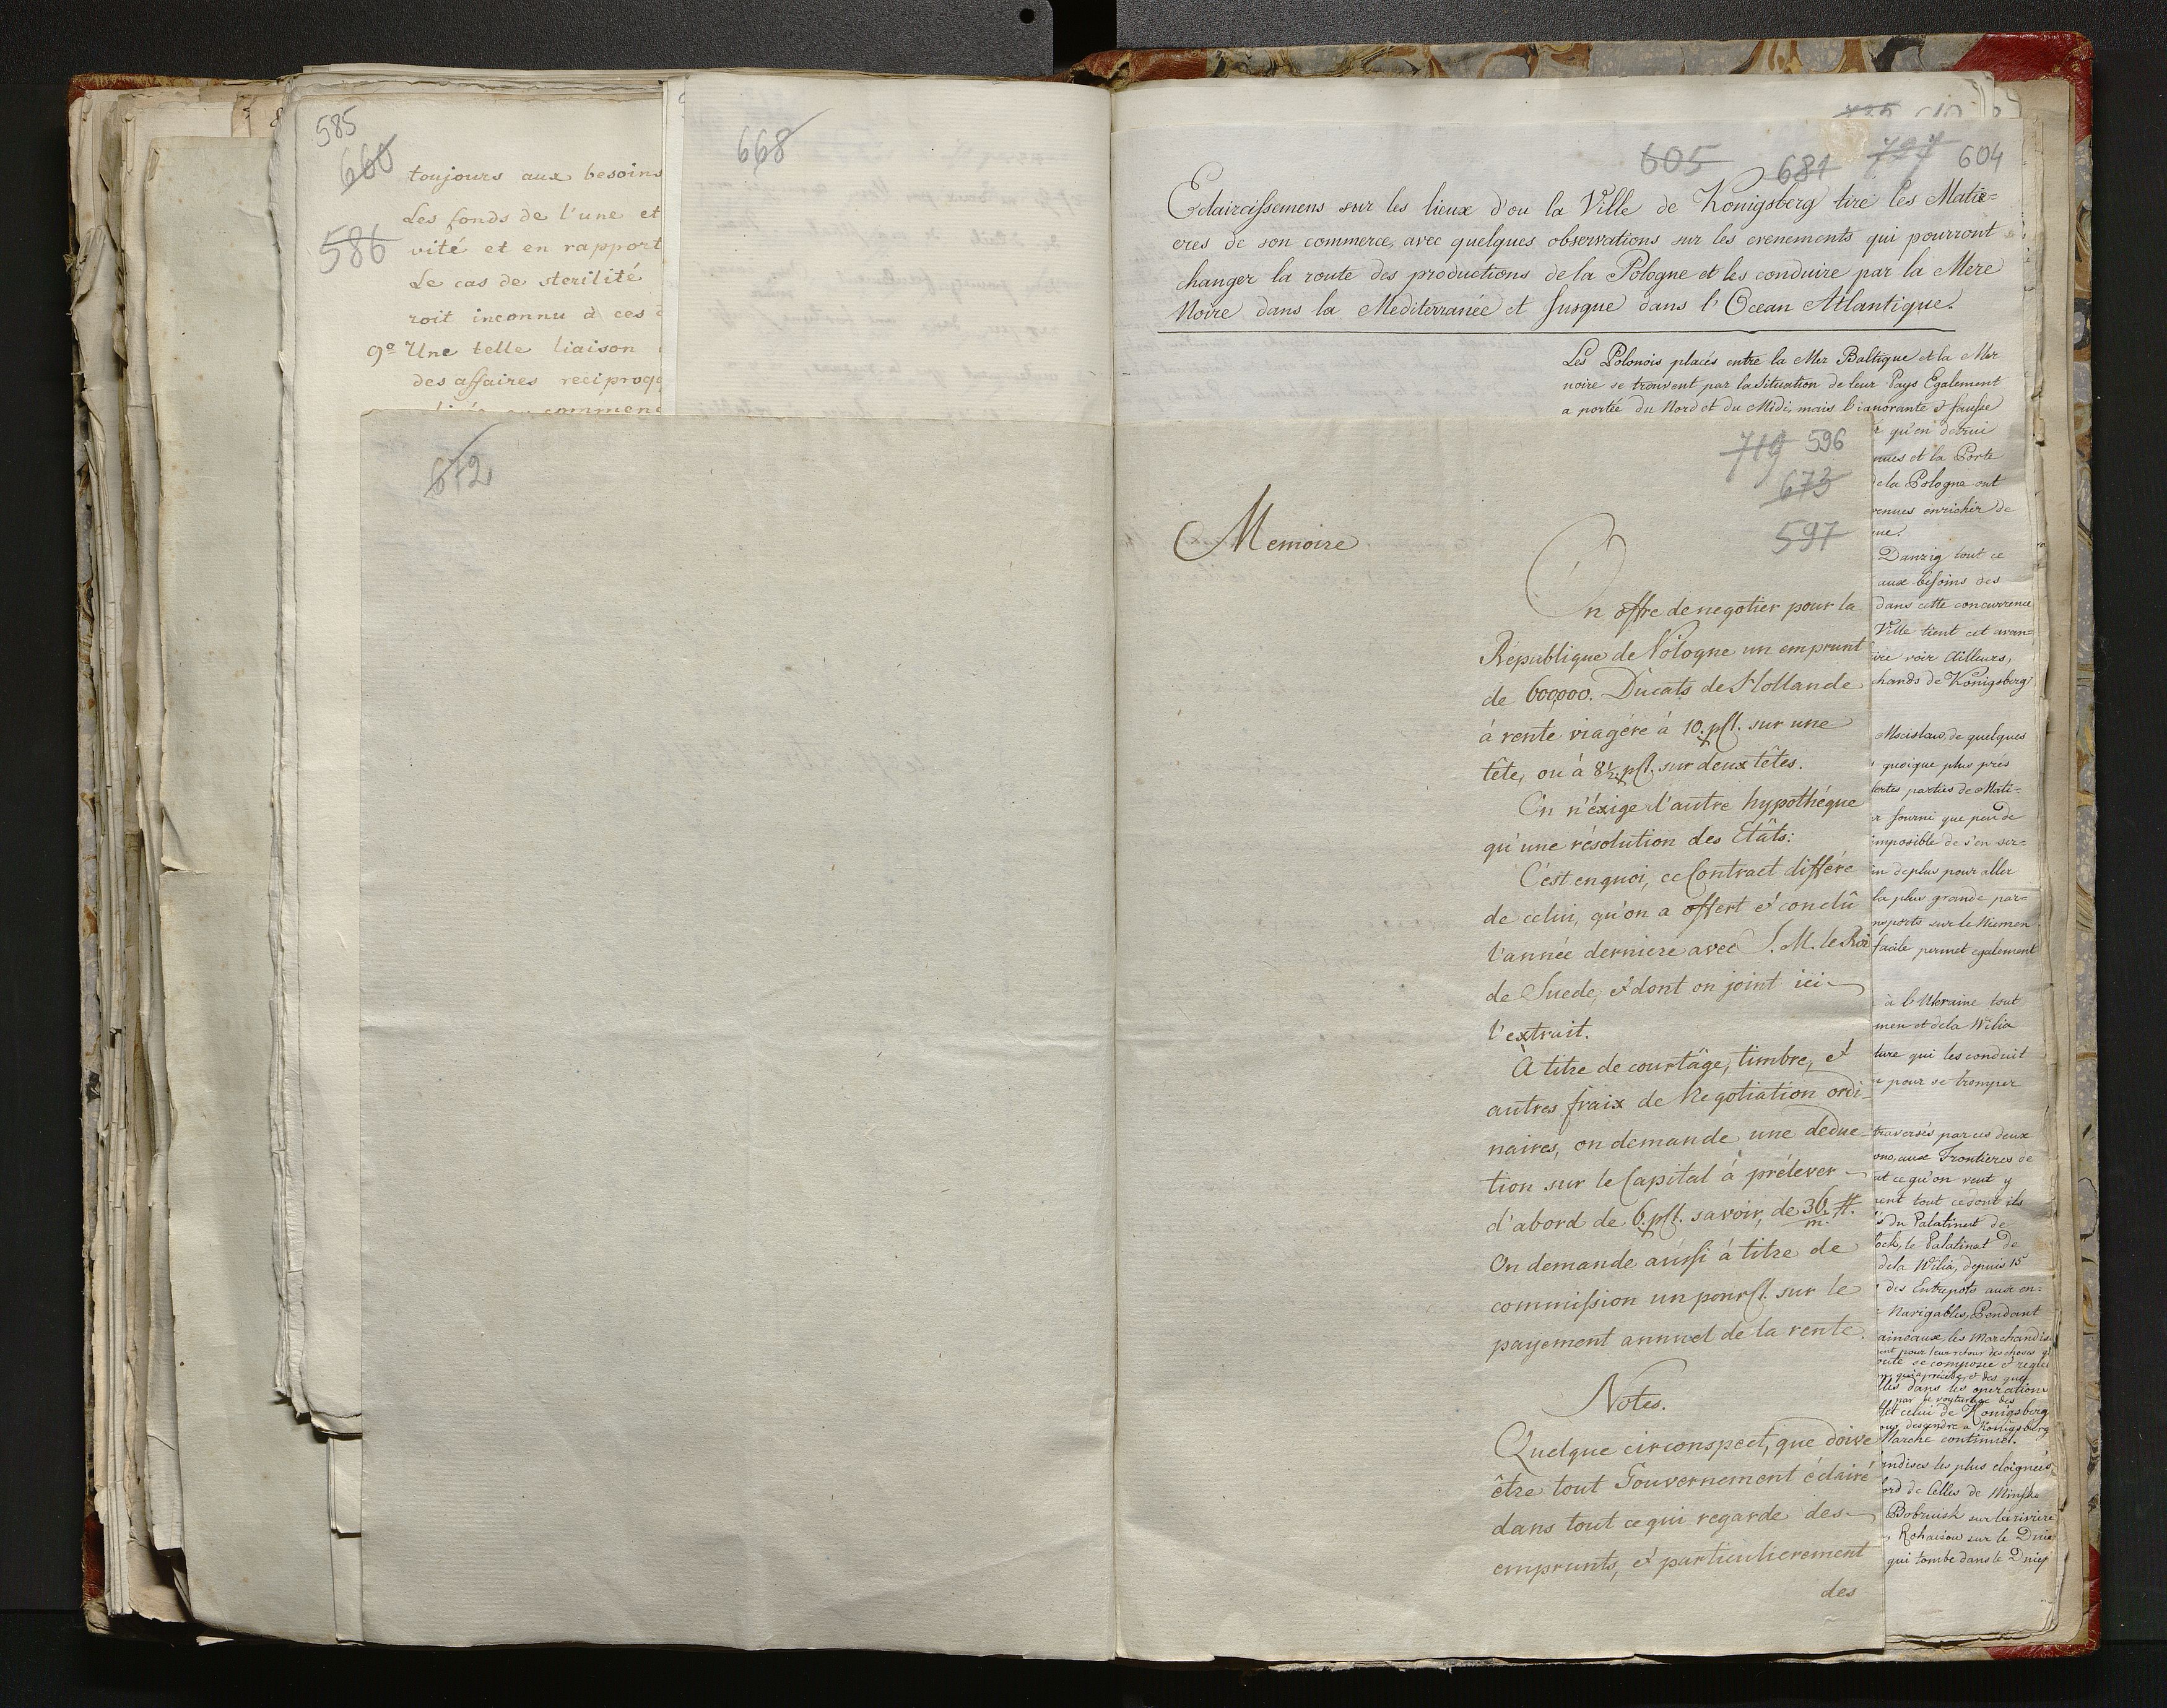 585
660
586
toujours aux besoins
Les fonds de l'une et
vité et en rapport
Le cas de sterilité
roit inconnu à ces
9º Une telle liaison
des affaires reciproq
commenc
668
672
605 681 727 604
Eclaircissemens sur les lieux d'ou la Ville de Konigsberg tire les Matie=
eres de son commerce, avec quelques observations sur les evenements qui pourront
changer la route des productions de la Pologne et les conduire par la Mere
Noire dans la Mediterranée et Jusque dans l'Ocean Atlantique.
Les Polonois placés entre la Mer Baltique et la Mer
noire se trouvent par la Situation de leur Pays Egalement
a portée du Nord et du Midi, mais l'ignorante & fausse
719 596
673
597
Memoire
On offre de negotier pour la
République de Pologne un emprunt
de 600,000. Ducats de Hollande
à rente viagère à 10. pCt. sur une
tête, ou à 8½. pCt. sur deux têtes.
On n'éxige d'autre hypothéque
qu'une résolution des Etâts:
C'est en quoi, ce Contract différe
de celui, qu'on a offert & conclû
l'année derniere avec S. M. le Roi
de Suede, & dont on joint ici
l'extrait.
À titre de courtâge, timbre, &
autres fraix de Negotiation ordi-
naires, on demande une deduc-
tion sur le Capital à prélever
d'abord de 6. pCt. savoir, de 36/m. #.
On demande aussi à titre de
commission un pour Ct. sur le
payement annuel de la rente.
Notes.
Quelque circonspect, que doive
être tout Gouvernement éclairé
dans tout ce qui regarde des
emprunts, & particulierement
des
qu'en detrui
nues et la Porte
de la Pologne ont
venues enrichir de
ue.
Danzig tout ce
aux besoins des
dans cette concurrence
Ville tient cet avan=
ire voir Ailleurs,
chands de Konigsberg
Mscislaw, de quelques
quoique plus près
fertes parties de Mati=
fourni que peu de
imposible de s'en ser=
in de plus pour aller
la plus grande par=
nsports sur le Niemen
facile permet egalement
à l'Ukraine tout
men et de la Wilia
ture qui les conduit
pour se tromper
traversés par ces deux
ono, aux Frontieres de
ut ce qu'on veut y
nent tout ce dont ils
du Palatinat de
ock, le Palatinat de
de la Wilia, depuis 15
des Entrepots aux en=
Navigables, Pendant
aineaux, les Marchandise
ent pour leur retour des choses
oute se composée & regle
lles dans les operations
par le voiturage des
et celui de Konigsberg
our descendre a Konigsberg
Marche continuel.
andises les plus eloignées
ord de Celles de Minsk
Bobruisk sur la riviere
Rohaczow sur le Dnie
qui tombe dans le Dniep